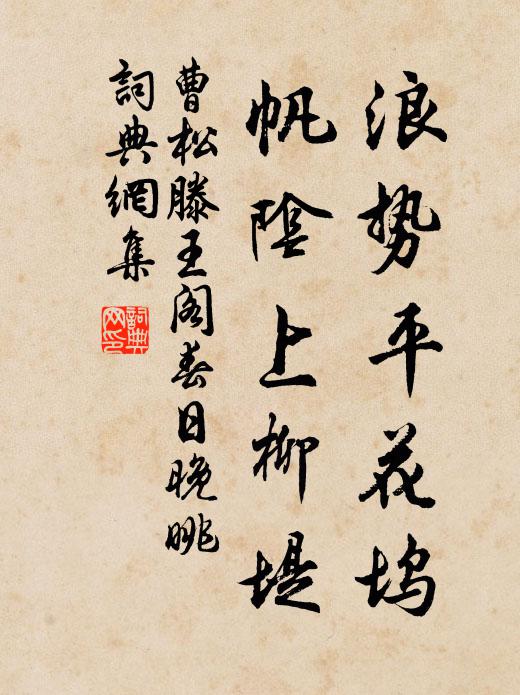 浪势平花坞
帆陰上柳堤
曹松滕王阁春日晚眺
詞典網集
詞典网印